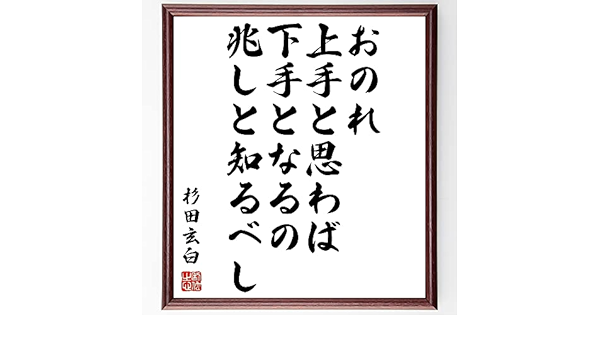 おのれ
上手と思わば
下手となるの
兆しと知るべし
杉田玄白